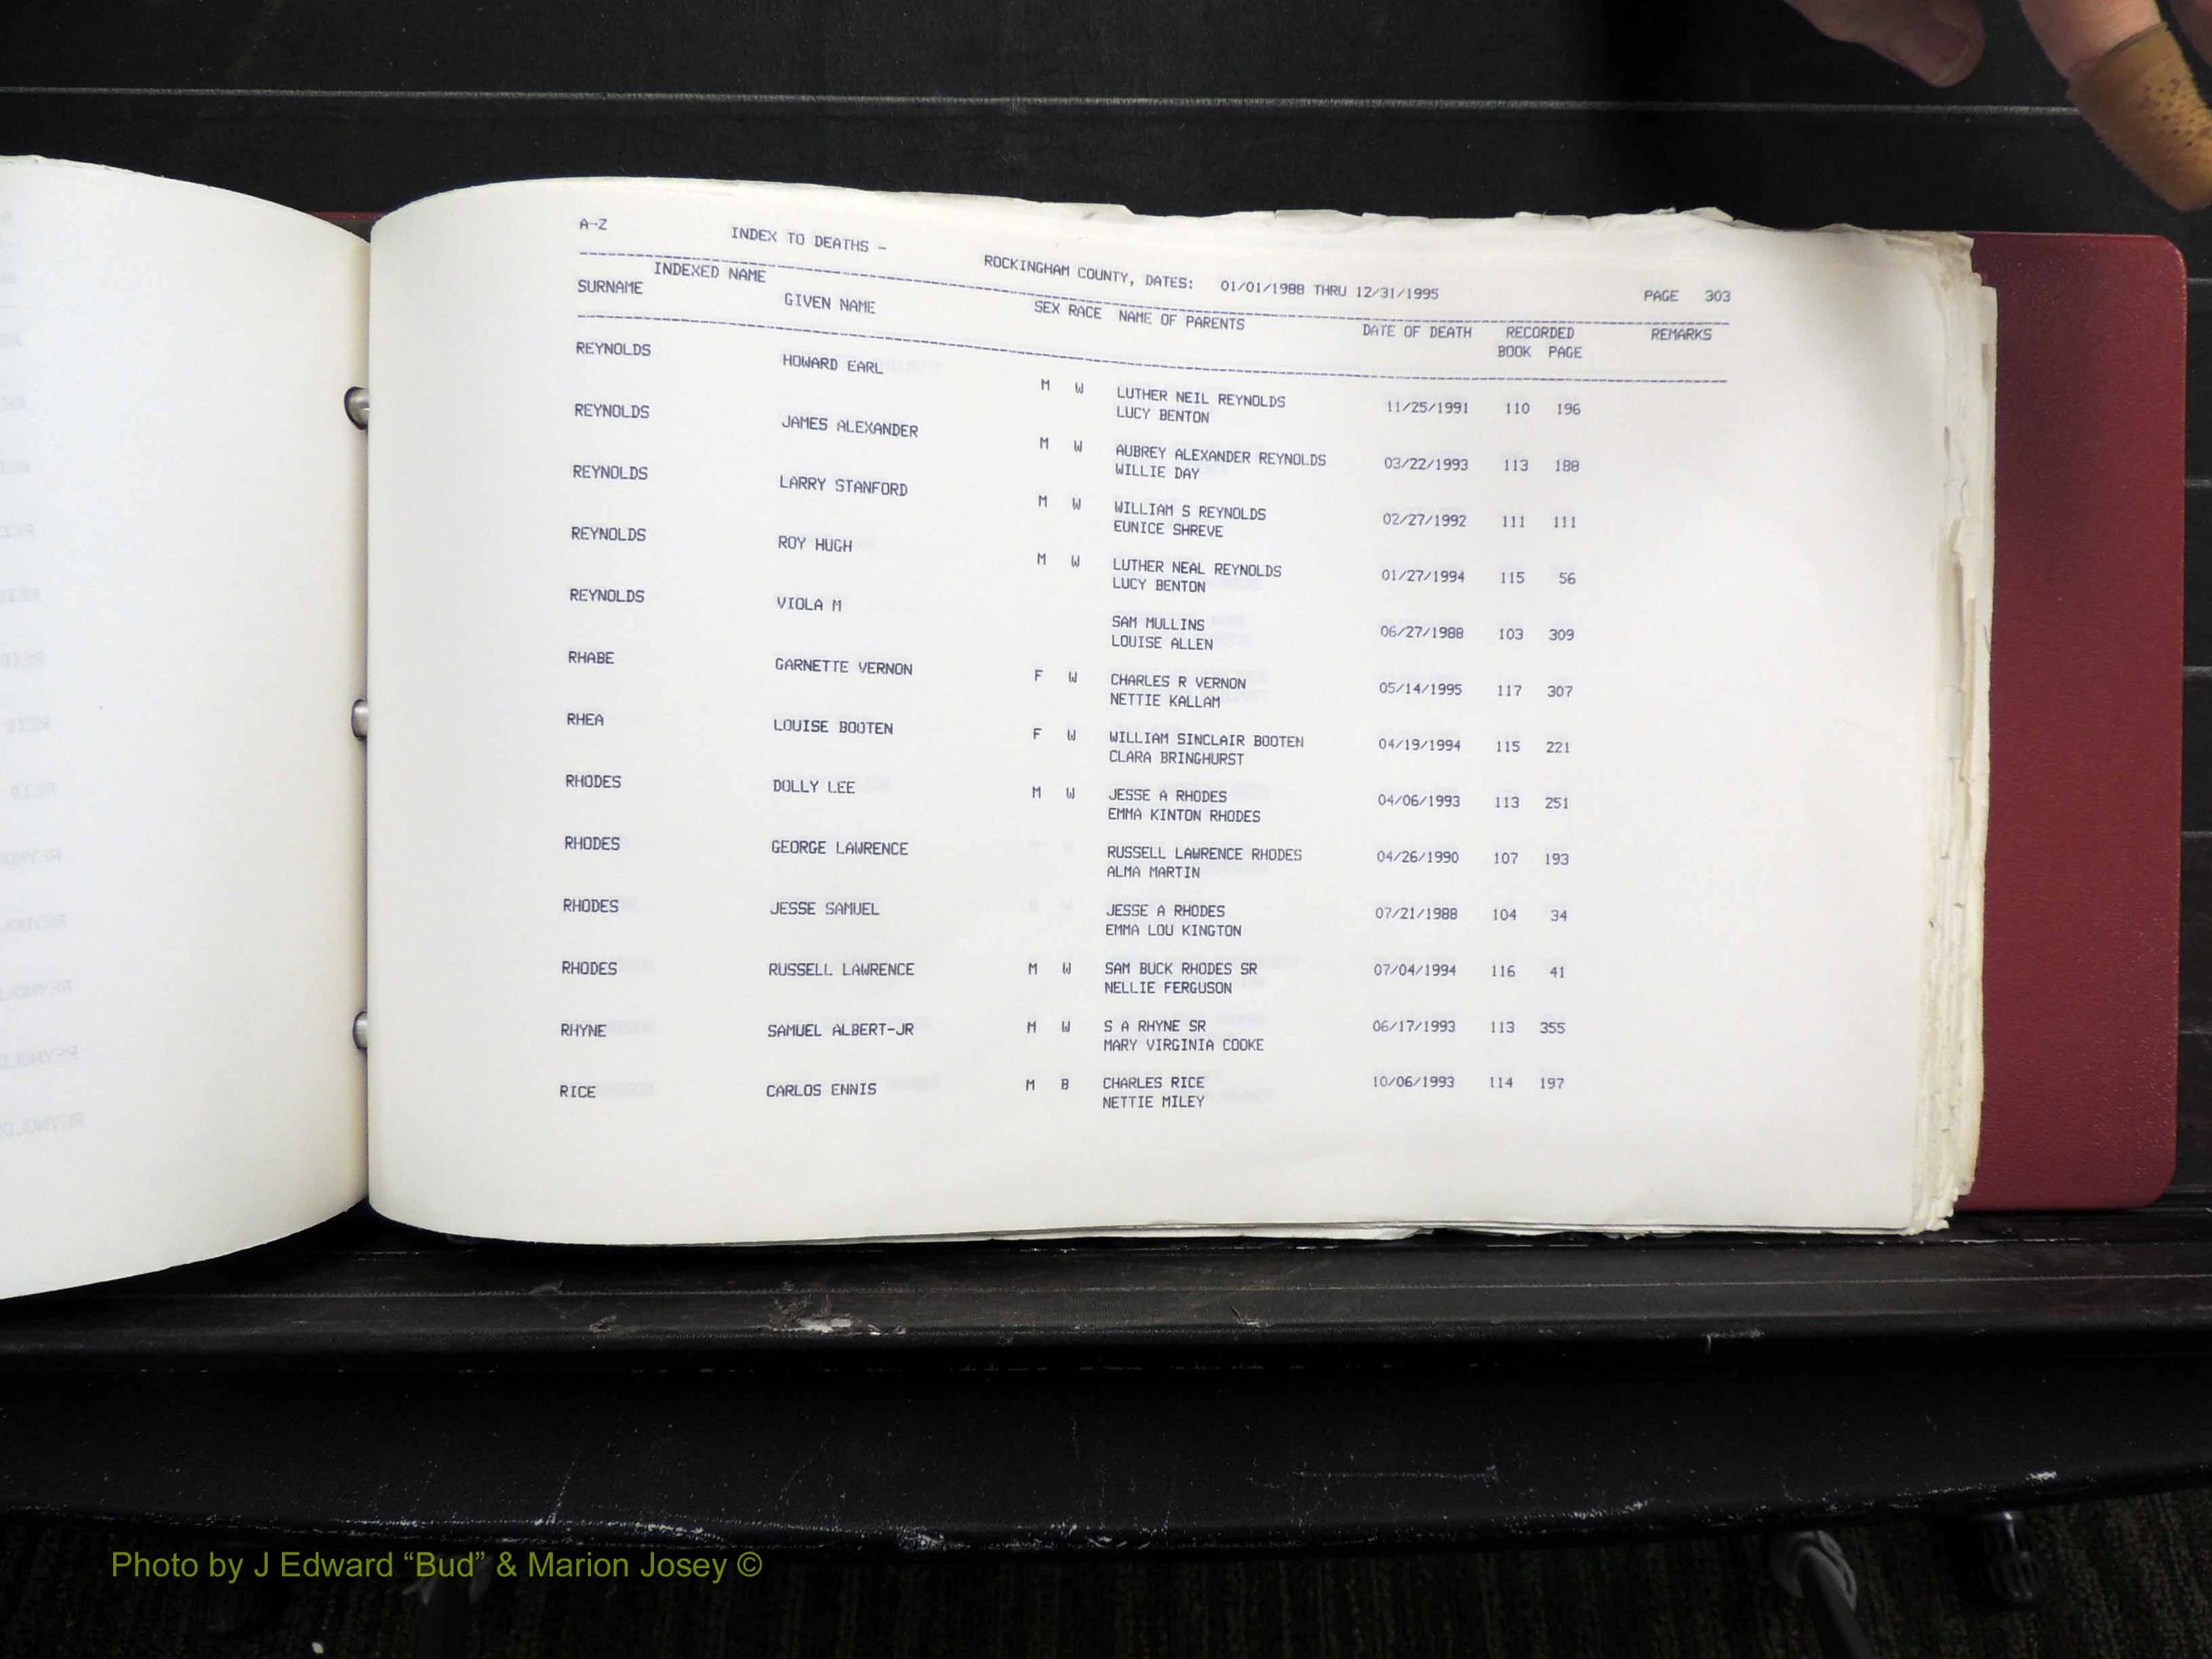 A-Z INDEX TO DEATHS - ROCKINGHAM COUNTY, DATES: 01/01/1988 THRU 12/31/1995 PAGE 303
INDEXED NAME
SURNAME GIVEN NAME SEX RACE NAME OF PARENTS DATE OF DEATH RECORDED REMARKS
BOOK PAGE
REYNOLDS HOWARD EARL M W LUTHER NEIL REYNOLDS 11/25/1991 110 196
LUCY BENTON
REYNOLDS JAMES ALEXANDER M W AUBREY ALEXANDER REYNOLDS 03/22/1993 113 188
WILLIE DAY
REYNOLDS LARRY STANFORD M W WILLIAM S REYNOLDS 02/27/1992 111 111
EUNICE SHREVE
REYNOLDS ROY HUGH M W LUTHER NEAL REYNOLDS 01/27/1994 115 56
LUCY BENTON
REYNOLDS VIOLA M SAM MULLINS 06/27/1988 103 309
LOUISE ALLEN
RHABE GARNETTE VERNON F W CHARLES R VERNON 05/14/1995 117 307
NETTIE KALLAM
RHEA LOUISE BOOTEN F W WILLIAM SINCLAIR BOOTEN 04/19/1994 115 221
CLARA BRINGHURST
RHODES DOLLY LEE M W JESSE A RHODES 04/06/1993 113 251
EMMA KINTON RHODES
RHODES GEORGE LAWRENCE RUSSELL LAWRENCE RHODES 04/26/1990 107 193
ALMA MARTIN
RHODES JESSE SAMUEL JESSE A RHODES 07/21/1988 104 34
EMMA LOU KINGTON
RHODES RUSSELL LAWRENCE M W SAM BUCK RHODES SR 07/04/1994 116 41
NELLIE FERGUSON
RHYNE SAMUEL ALBERT-JR M W S A RHYNE SR 06/17/1993 113 355
MARY VIRGINIA COOKE
RICE CARLOS ENNIS M B CHARLES RICE 10/06/1993 114 197
NETTIE MILEY
Photo by J Edward “Bud” & Marion Josey ©